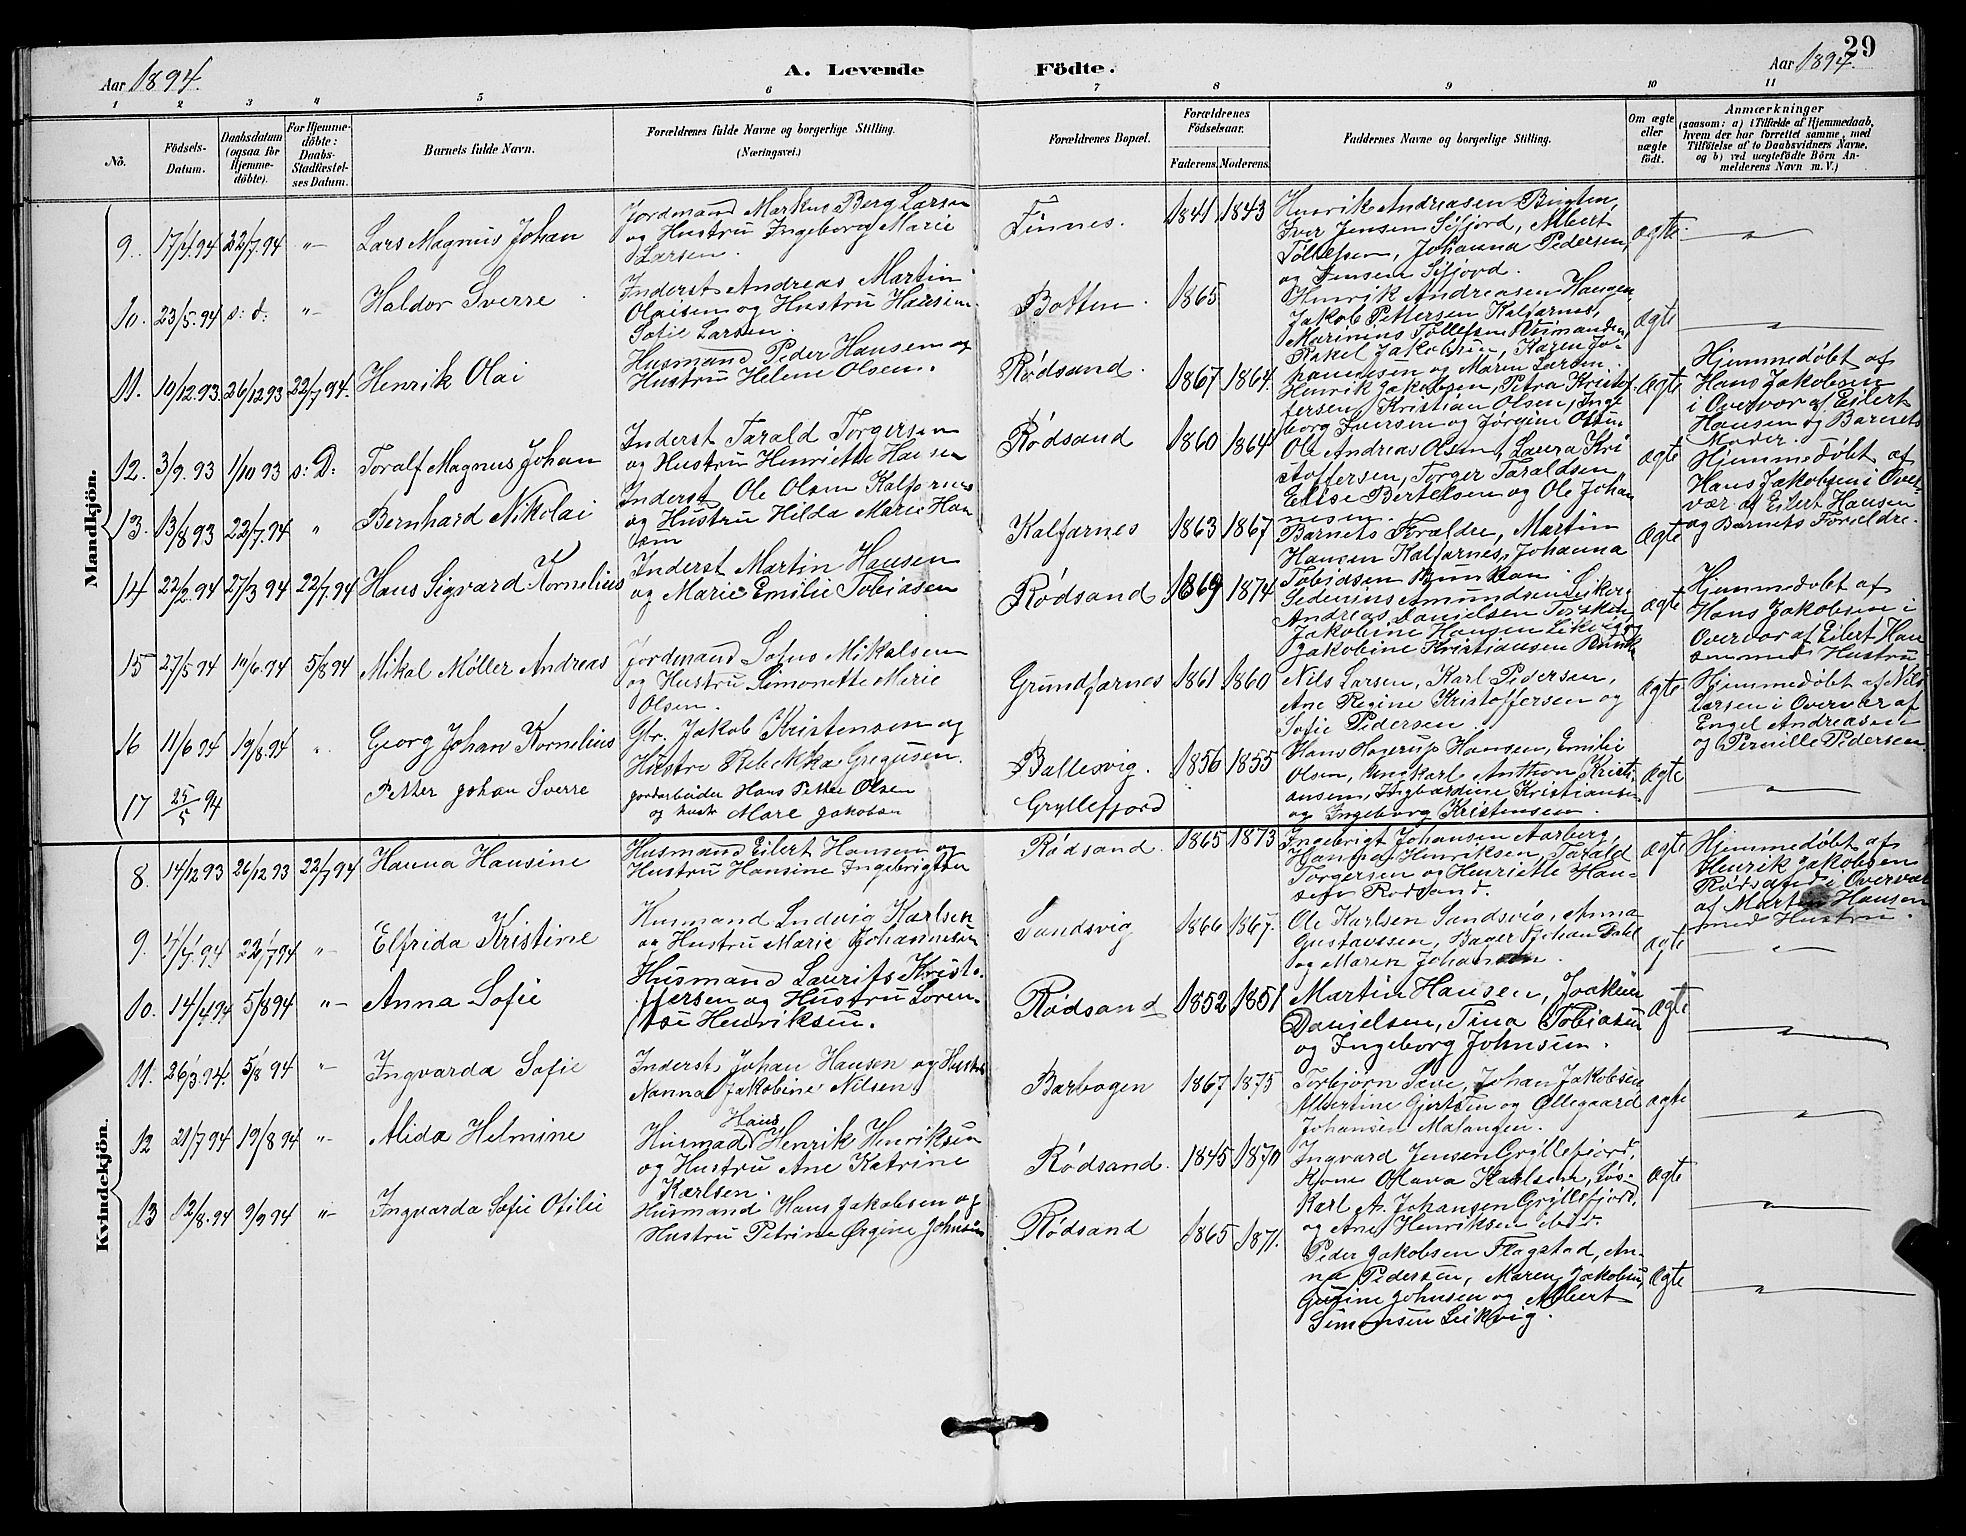 29
Aar 1894.
A. Levende Födte.
Aar 1894.
1 2 3 4 5 6 7 8 9 10 11
No.
Födsels-
Datum.
Daabsdatum
(ogsaa for
Hjemme-
döbte).
For Hjemme-
döbte:
Daabs-
Stadfæstel-
ses Datum.
Barnets fulde Navn.
Forældrenes fulde Navne og borgerlige Stilling.
(Næringsvei.)
Forældrenes Bopæl.
Forældrenes
Födselsaar.
Faderens. Moderens.
Faddernes Navne og borgerlige Stilling.
Om ægte
eller
uægte
födt.
Anmærkninger
(saasom: a) i Tilfælde af Hjemmedaab,
hvem der har forrettet samme, med
Tilföielse af to Daabsvidners Navne,
og b) ved uægtefödte Börn An-
melderens Navn m. V.)
Mandkjön.
9. 17/4 94 22/7. 94 "- Lars Magnus Johan
Jordmand Markus Berg Larsen
og Hustru Ingeborg Marie
Larsen.
Finnes. 1841 1843
Henrik Andreasen
Iver Jensen Sifjord, Albert
Tollefsen, Johanna Pedersen,
og Jensen Sifjord.
ægte.
10. 23/5. 94 s: d. "- Haldor Sverre
Inderst Andreas Martin
Olaisen og Hustru Hansine
Sofie Larsen.
Botten. 1865
Henrik Andreasen Haugen,
Jakob Pettersen Kalfarnes,
Marinius Tollefsen
Rakel Jakobsen, Karen Jo-
hannesen og Maren Larsen.
ægte
11. 10/12. 93 26/12 93 22/7 94. Henrik Olai
Husmand Peder Hansen og
Hustru Helene Olsen.
Rødsand. 1867 1864.
Henrik Jakobsen, Petra Kristof-
fersen, Kristian Olsen, Inge
borg Iversen og Jørgine Olsen.
ægte
Hjemmedøbt af
Hans Jakobsen
i Overvær af Eilert
Hansen og Barnets
Moder.
12. 3/9. 93 1/10 93 s: D: Toralf Magnus Johan
Inderst Tarald Torgersen
og Hustru Henriette Hansen
Rødsand 1860 1864
Ole Andreas Olsen, Laura Kri
stoffersen, Torger Taraldsen,
Elise Bertelsen og Ole Johan
nesen.
ægte
Hjemmedøbt af
Hans Jakobsen i Over-
vær af Eilert Hansen
og Barnets Forældre.
13. 13/8 93 22/7. 94 " Bernhard Nikolai
Inderst Ole Olsen Kalfarnes
og Hustru Hilda Marie Han
sen
Kalfarnes 1863 1867
Barnets Forældre, Martin
Hansen Kalfarnes, Johanna
Tobiasen
ægte
14 22/2. 94 27/3 94 22/7 94 Hans Sigvard Kornelius
Inderst Martin Hansen
og Marie Emilie Tobiasen
Rødsand 1869 1874
Sederius Amundsen
Andreas Danielsen Torsken
Jakobine Hansen Leikvig
Jakobine Kristiansen
ægte
Hjemmedøbt af
Hans Jakobsen i
Overvær af Eilert Han
sen med Hustru
15 27/5 94 10/6. 94 5/8 94 Mikal Møller Andreas
Jordmand Sofus Mikalsen
og Hustru Simonette Marie
Olsen.
Grundfarnes 1861 1860
Nils Larsen, Karl Pedersen,
Ane Regine Kristoffersen og
Sofie Pedersen
ægte
Hjemmedøbt af Nils
Larsen i Overvær af
Engel Andreasen
og Pernille Pedersen
16 11/6 94 19/8. 94 " Georg Johan Kornelius
Gbr. Jakob Kristensen og
Hustru Rebekka Gregusen.
Ballesvig. 1856 1855
Hans Hagerup Hansen, Emilie
Olsen, Ungkarl Anthon Kristi-
ansen, Kristiansen
og Ingeborg Kristensen
ægte
17 25/5 94 Petter Johan Sverre
Jordarbeider Hans Petter Olsen
og hustr Mare Jakobsen
Gryllefjord
Kvindekjön.
8. 14/12 93 26/12 93 22/7 94 Hanna Hansine
Husmand Eilert Hansen og
Hustru Hansine Ingebrigtsen
Rødsand. 1865 1873
Ingebrigt Johansen Aarberg,
Hansine Henriksen, Tarald
Torgersen og Henriette Han-
sen Rødsand.
ægte
Hjemmedøbt af
Henrik Jakobsen
Rødsand i Overvær
af Martin Hansen
med Hustru.
9. 22/7 94 "- Elfrida Kristine
Husmand Ludvig Karlsen
og Hustru Marie Johannesen
Sandsvig 1866 1867.
Ole Karlsen Sandsvig, Anna
Gustavssen, Bager Johan Dahl
og Maren Johansen.
ægte
10. 14/4 94 5/8 94 "- Anna Sofie
Husmand Laurits Kristo-
ffersen og Hustru Loren-
tse Henriksen.
Rødsand 1852 1851
Martin Hansen, Joakim
Danielsen, Tina Tobiasen
og Ingeborg Johnsen.
ægte
11. 26/3 94. 5/8 94 "- Ingvarda Sofie
Inderst Johan Hansen og Hustru
Nanna Jakobine Nilsen
Barbogen 1867 1875
Torbjørn Sæve, Johan Jakobsen
Albertine Gjertsen og Ollegaard
Johansen Malangen.
ægte
12 21/7 94 19/8 94 "- Alida Helmine
Hans
Husmad Henrik Henriksen
og Hustru Ane Katrine
Karlsen.
Rødsand. 1845 1870
Ingvard Jensen Gryllefjord,
Kone Olava Karlsen, Løs-
Karl A. Johansen Gryllefjord,
og Ane Henriksen ibid.
ægte
13 12/8. 94 9/9 94 "- Ingvarda Sofie Otilie
Husmand Hans Jakobsen og
Hustru Petrine Ørgine Johnsen
Rødsand 1865 1871.
Peder Jakobsen Flagstad, An-
na Pedersen, Maren Jakobsen,
Gusine Johnsen og Albert
Simonsen Leikvig.
ægte